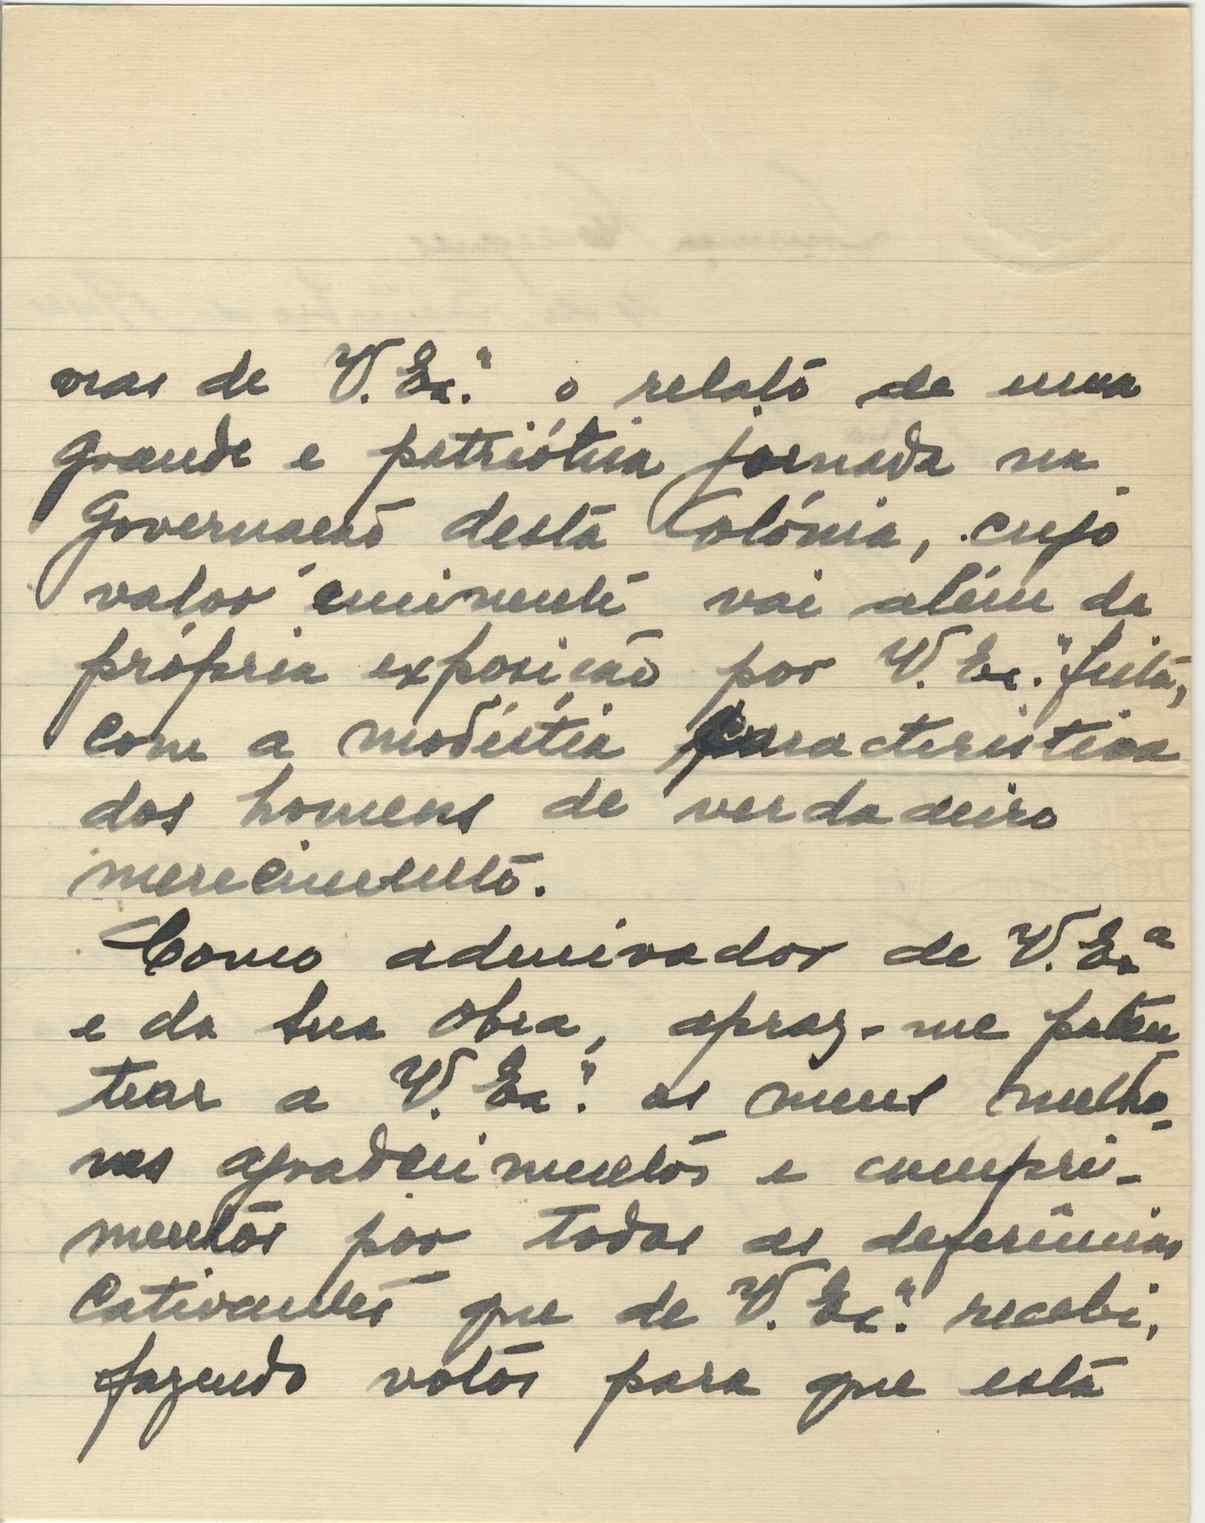 vras de V. Ex.ª o relato de uma
grande e patriótica jornada na
Governação desta Colónia, cujo
valor eminente vai além da
própria exposição por V. Ex.ª feita,
com a modéstia caracteristica
dos homens de verdadeiro
merecimento.
Como admirador de V. Exª
e da sua obra, apraz-me paten-
tear a V. Ex.ª os meus melho-
res agradecimentos e cumpri-
mentos por todas as deferências
cativantes que de V. Ex.ª recebi,
fazendo votos para que esta